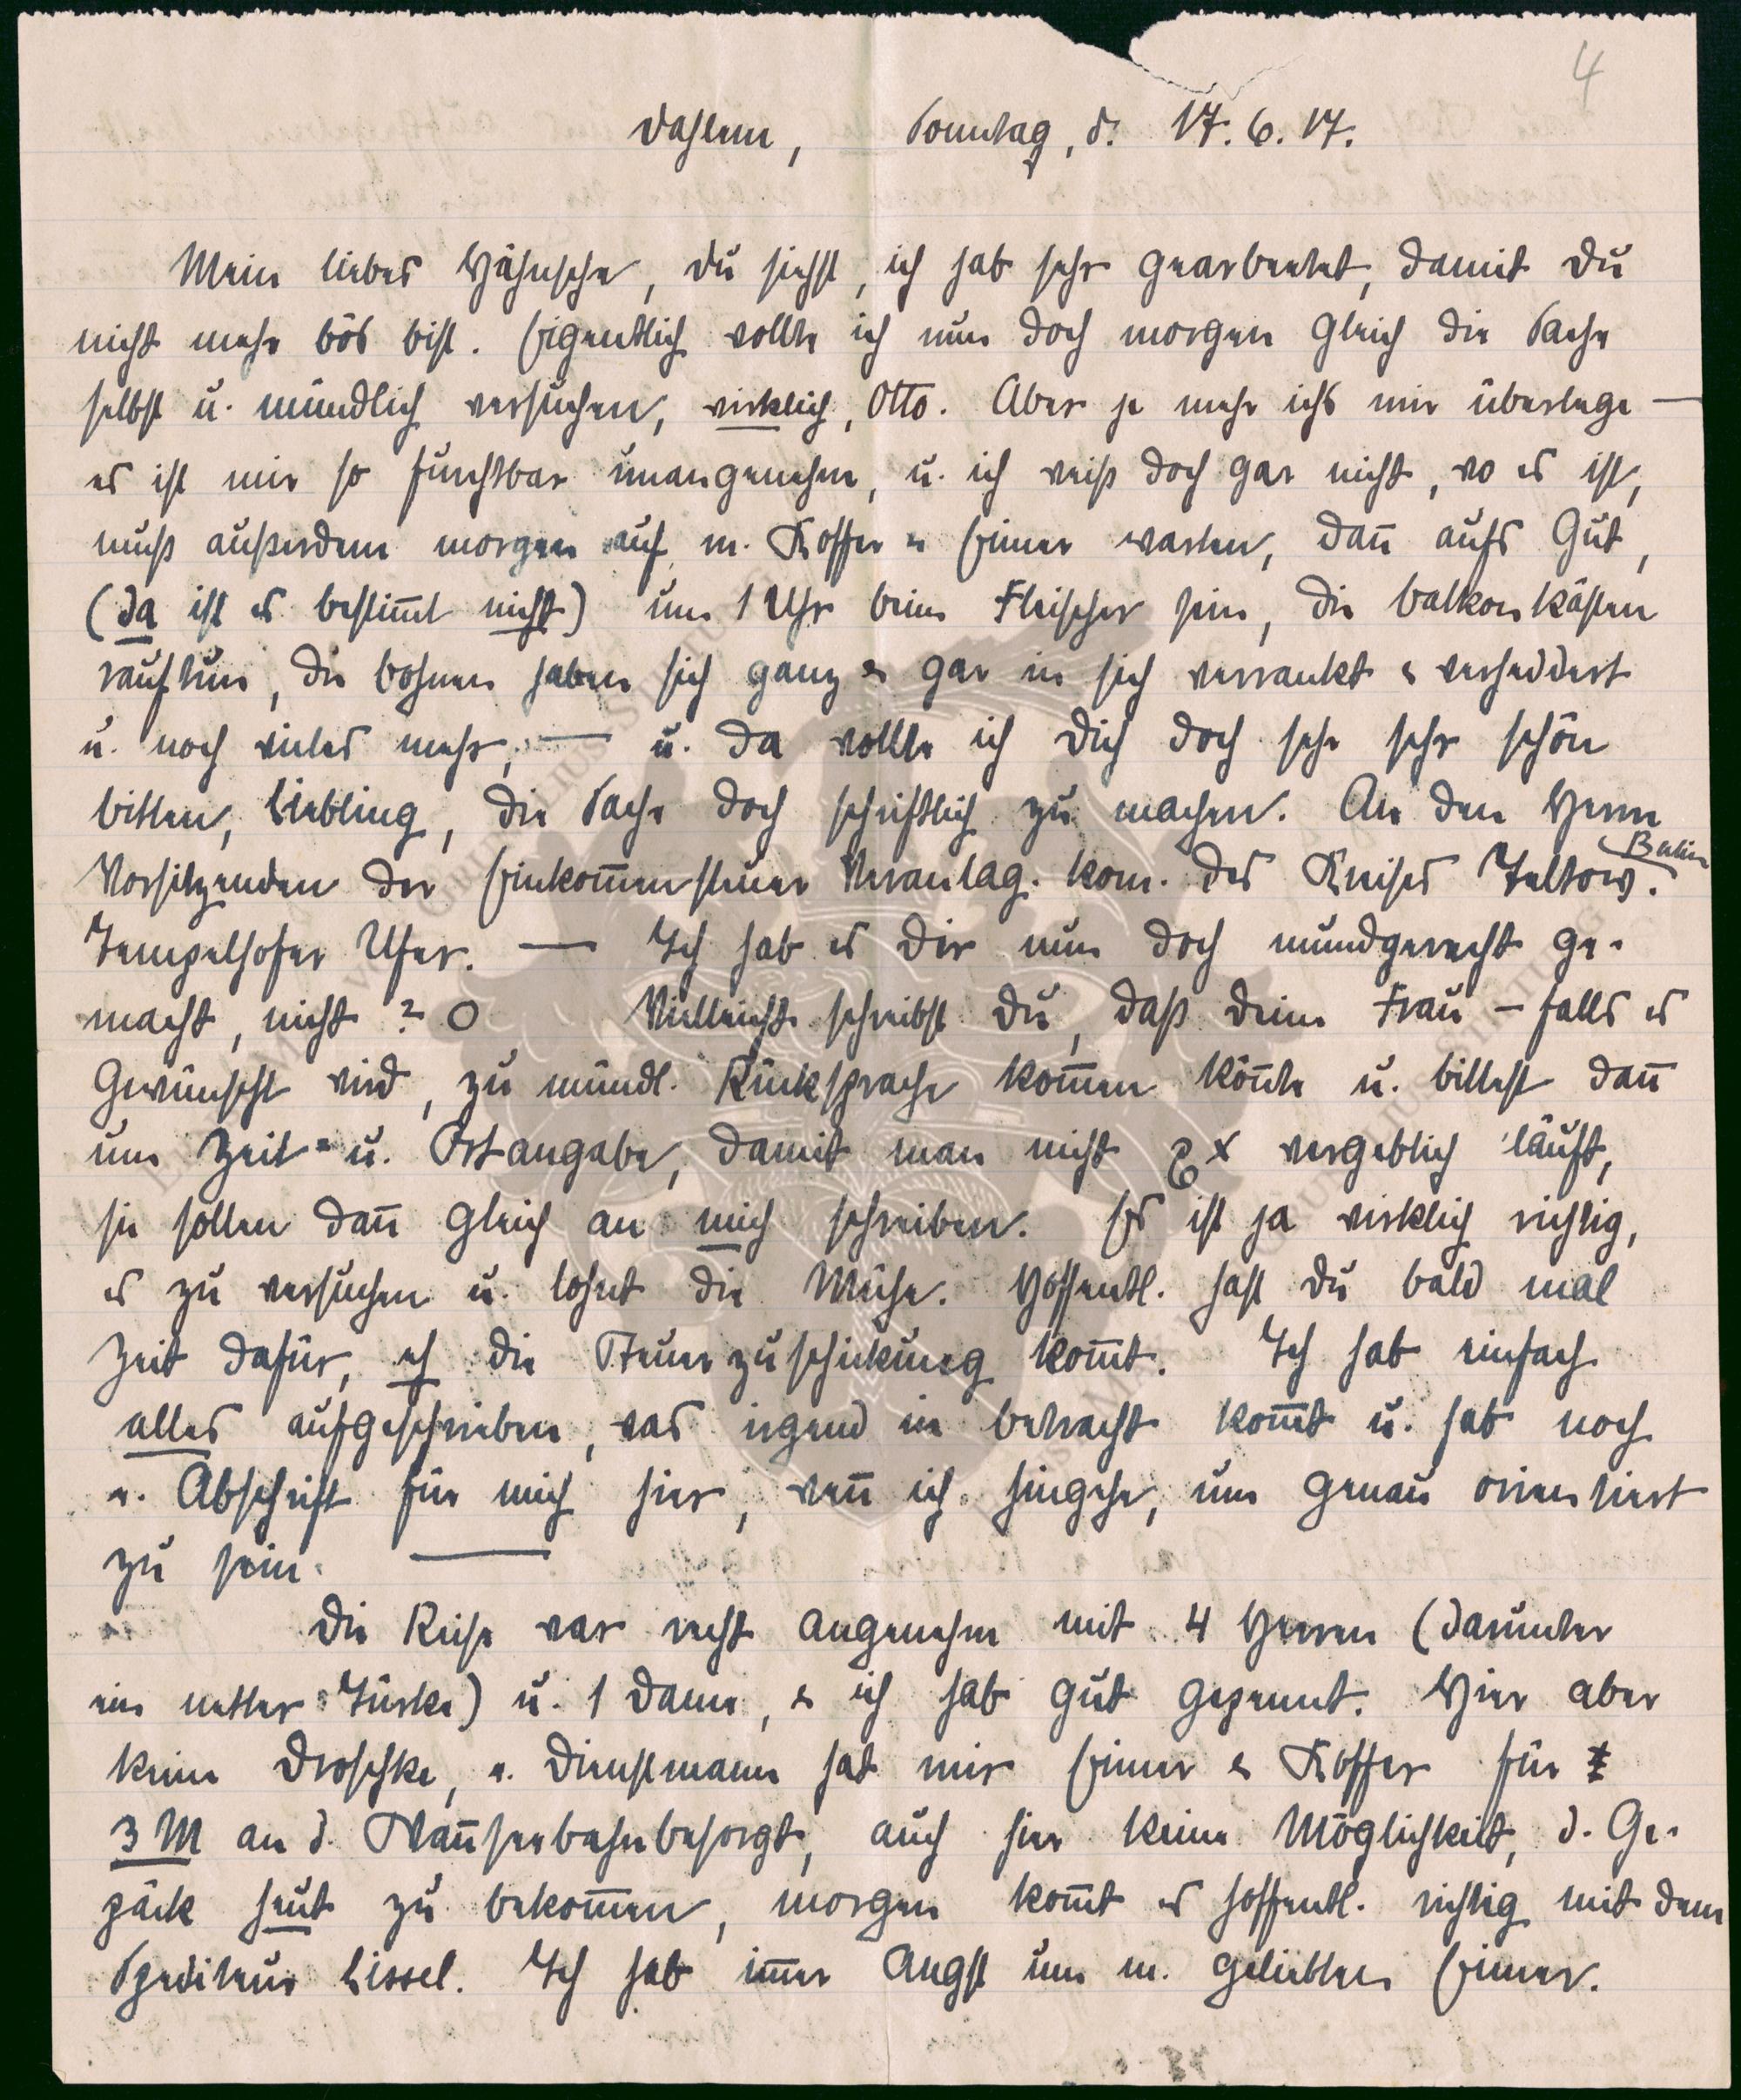 4
Dahlem, Sonntag, d. 17.6.17.
Mein liebes Hähnsche, Du siehst, ich hab sehr gearbeitet, damit Du
nicht mehr bös bist. Eigentlich wollte ich nun doch morgen gleich die Sache
selbst u. mündlich versuchen, wirklich, Otto. Aber je mehr ichs mir überlege —
es ist mir so furchtbar unangenehm, u. ich weiß doch gar nicht, wo es ist,
muß außerdem morgen auf m. Koffer u Eimer warten, dann aufs Gut,
(da ist es bestimmt nicht) um 1 Uhr beim Fleischer sein, die Balkonkästen
rauftun, die Bohnen haben sich ganz & gar in sich verrankt & verheddert
u. noch vieles mehr, — u. da wollte ich Dich doch sehr sehr schön
bitten, Liebling, die Sache doch schriftlich zu machen. An den Herrn
Vorsitzenden der Einkommensteuer Veranlag. Kom. des Kreises Teltow. Berlin
Tempelhofer Ufer. — Ich hab es Dir nun doch mundgerecht ge-
macht, nicht? O Vielleicht schreibst Du, daß Deine Frau – falls es
gewünscht wird, zu mündl. Rücksprache kommen könnte u. bittest dann
um Zeit- u. Ortangabe, damit man nicht x vergeblich läuft,
sie sollen dann gleich an mich schreiben. Es ist ja wirklich richtig,
es zu versuchen u. lohnt die Mühe. Hoffentl. hast Du bald mal
Zeit dafür, eh die Steuerzuschickung kommt. Ich hab einfach
alles aufgeschrieben, was irgend in Betracht kommt u. hab noch
e. Abschrift für mich hier, wenn ich hingehe, um genau orientiert
zu sein. —
Die Reise war recht angenehm mit 4 Herren (darunter
ein netter Türke) u. 1 Dame, & ich hab gut gepennt. Hier aber
keine Droschke, e. Dienstmann hat mir Eimer & Koffer für
3 M an d. Wannseebahn besorgt, auch hier keine Möglichkeit, d. Ge-
päck heut zu bekommen, morgen kommt es hoffentl. richtig mit dem
Spediteur Lissel. Ich hab immer Angst um m. geliebten Eimer.